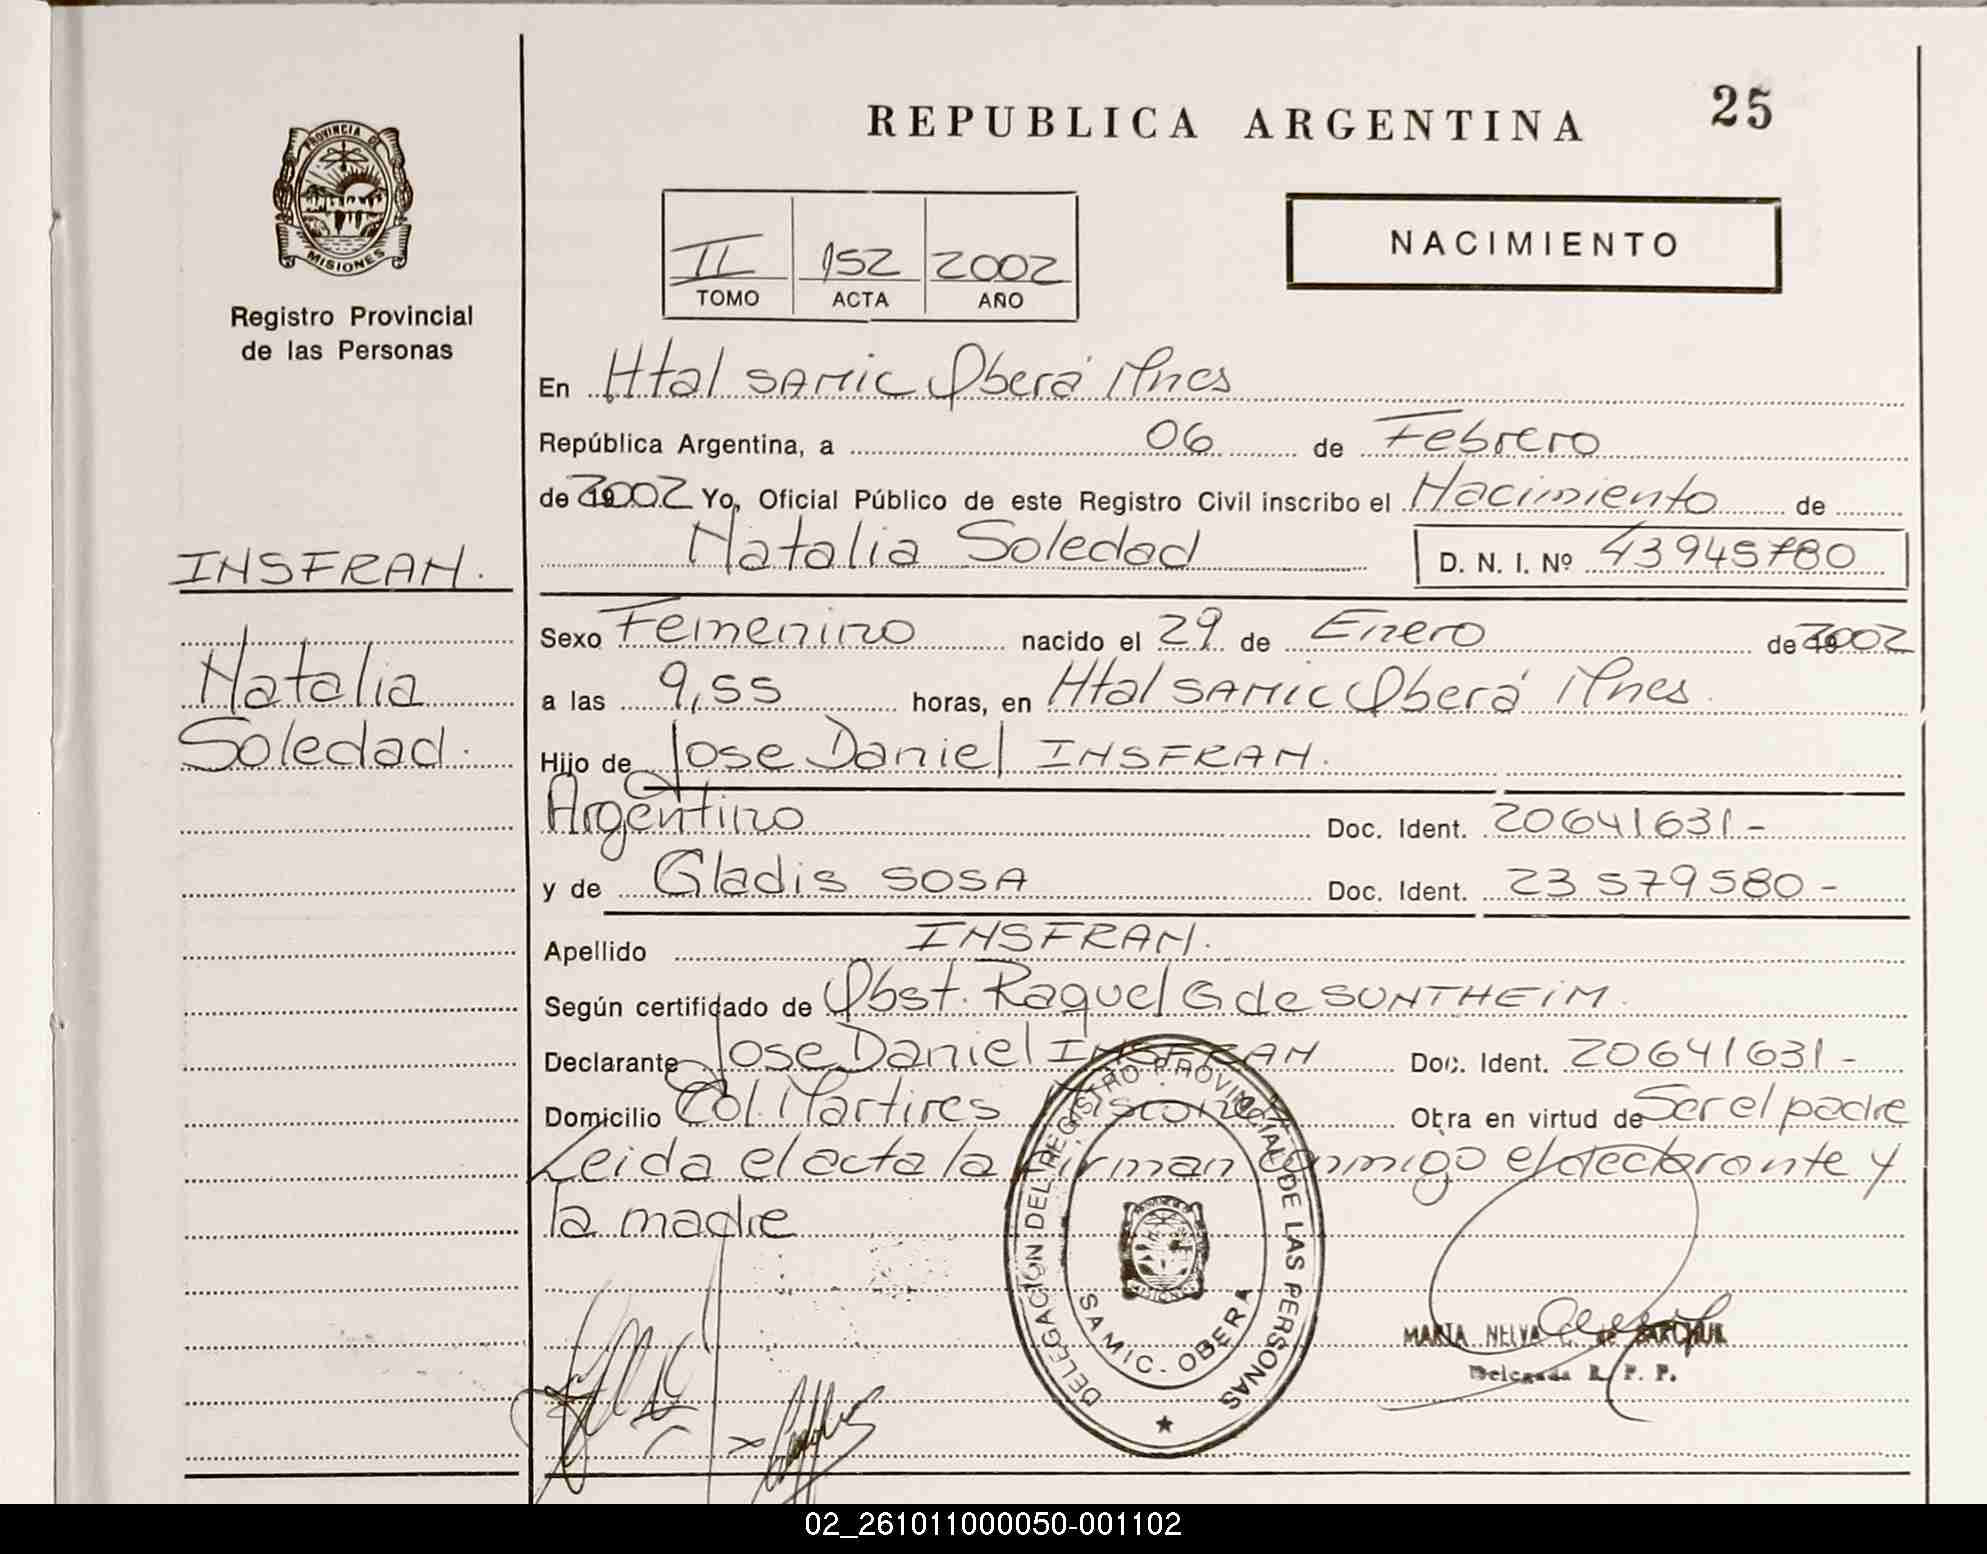 REPUBLICA ARGENTINA
25
PROVINCIA DE
MISIONES
Registro Provincial
de las Personas
II 152 2002
TOMO ACTA AÑO
NACIMIENTO
En Htal SAMIC Oberá Mnes
República Argentina, a 06 de Febrero
de 2002 Yo, Oficial Público de este Registro Civil inscribo el Nacimiento de
Natalia Soledad D. N. I. Nº 43945780
INSFRAN.
Natalia
Soledad.
Sexo Femenino nacido el 29 de Enero de 2002
a las 9,55 horas, en Htal SAMIC Oberá Mnes.
Hijo de Jose Daniel INSFRAN.
Argentino Doc. Ident. 20641631-
y de Gladis SOSA Doc. Ident. 23579580-
Apellido INSFRAN.
Según certificado de Obst. Raquel G de SONTHEIM.
Declarante Jose Daniel INSFRAN Doc. Ident. 20641631-
Domicilio Col. Martires Misiones Otra en virtud de Ser el padre
Leida el acta la firman conmigo el declarante y
la madre
DELEGACION DEL REGISTRO PROVINCIAL DE LAS PERSONAS
SAMIC. OBERA
MARIA NELVA C. de
Delegada R. P. P.
02_261011000050-001102